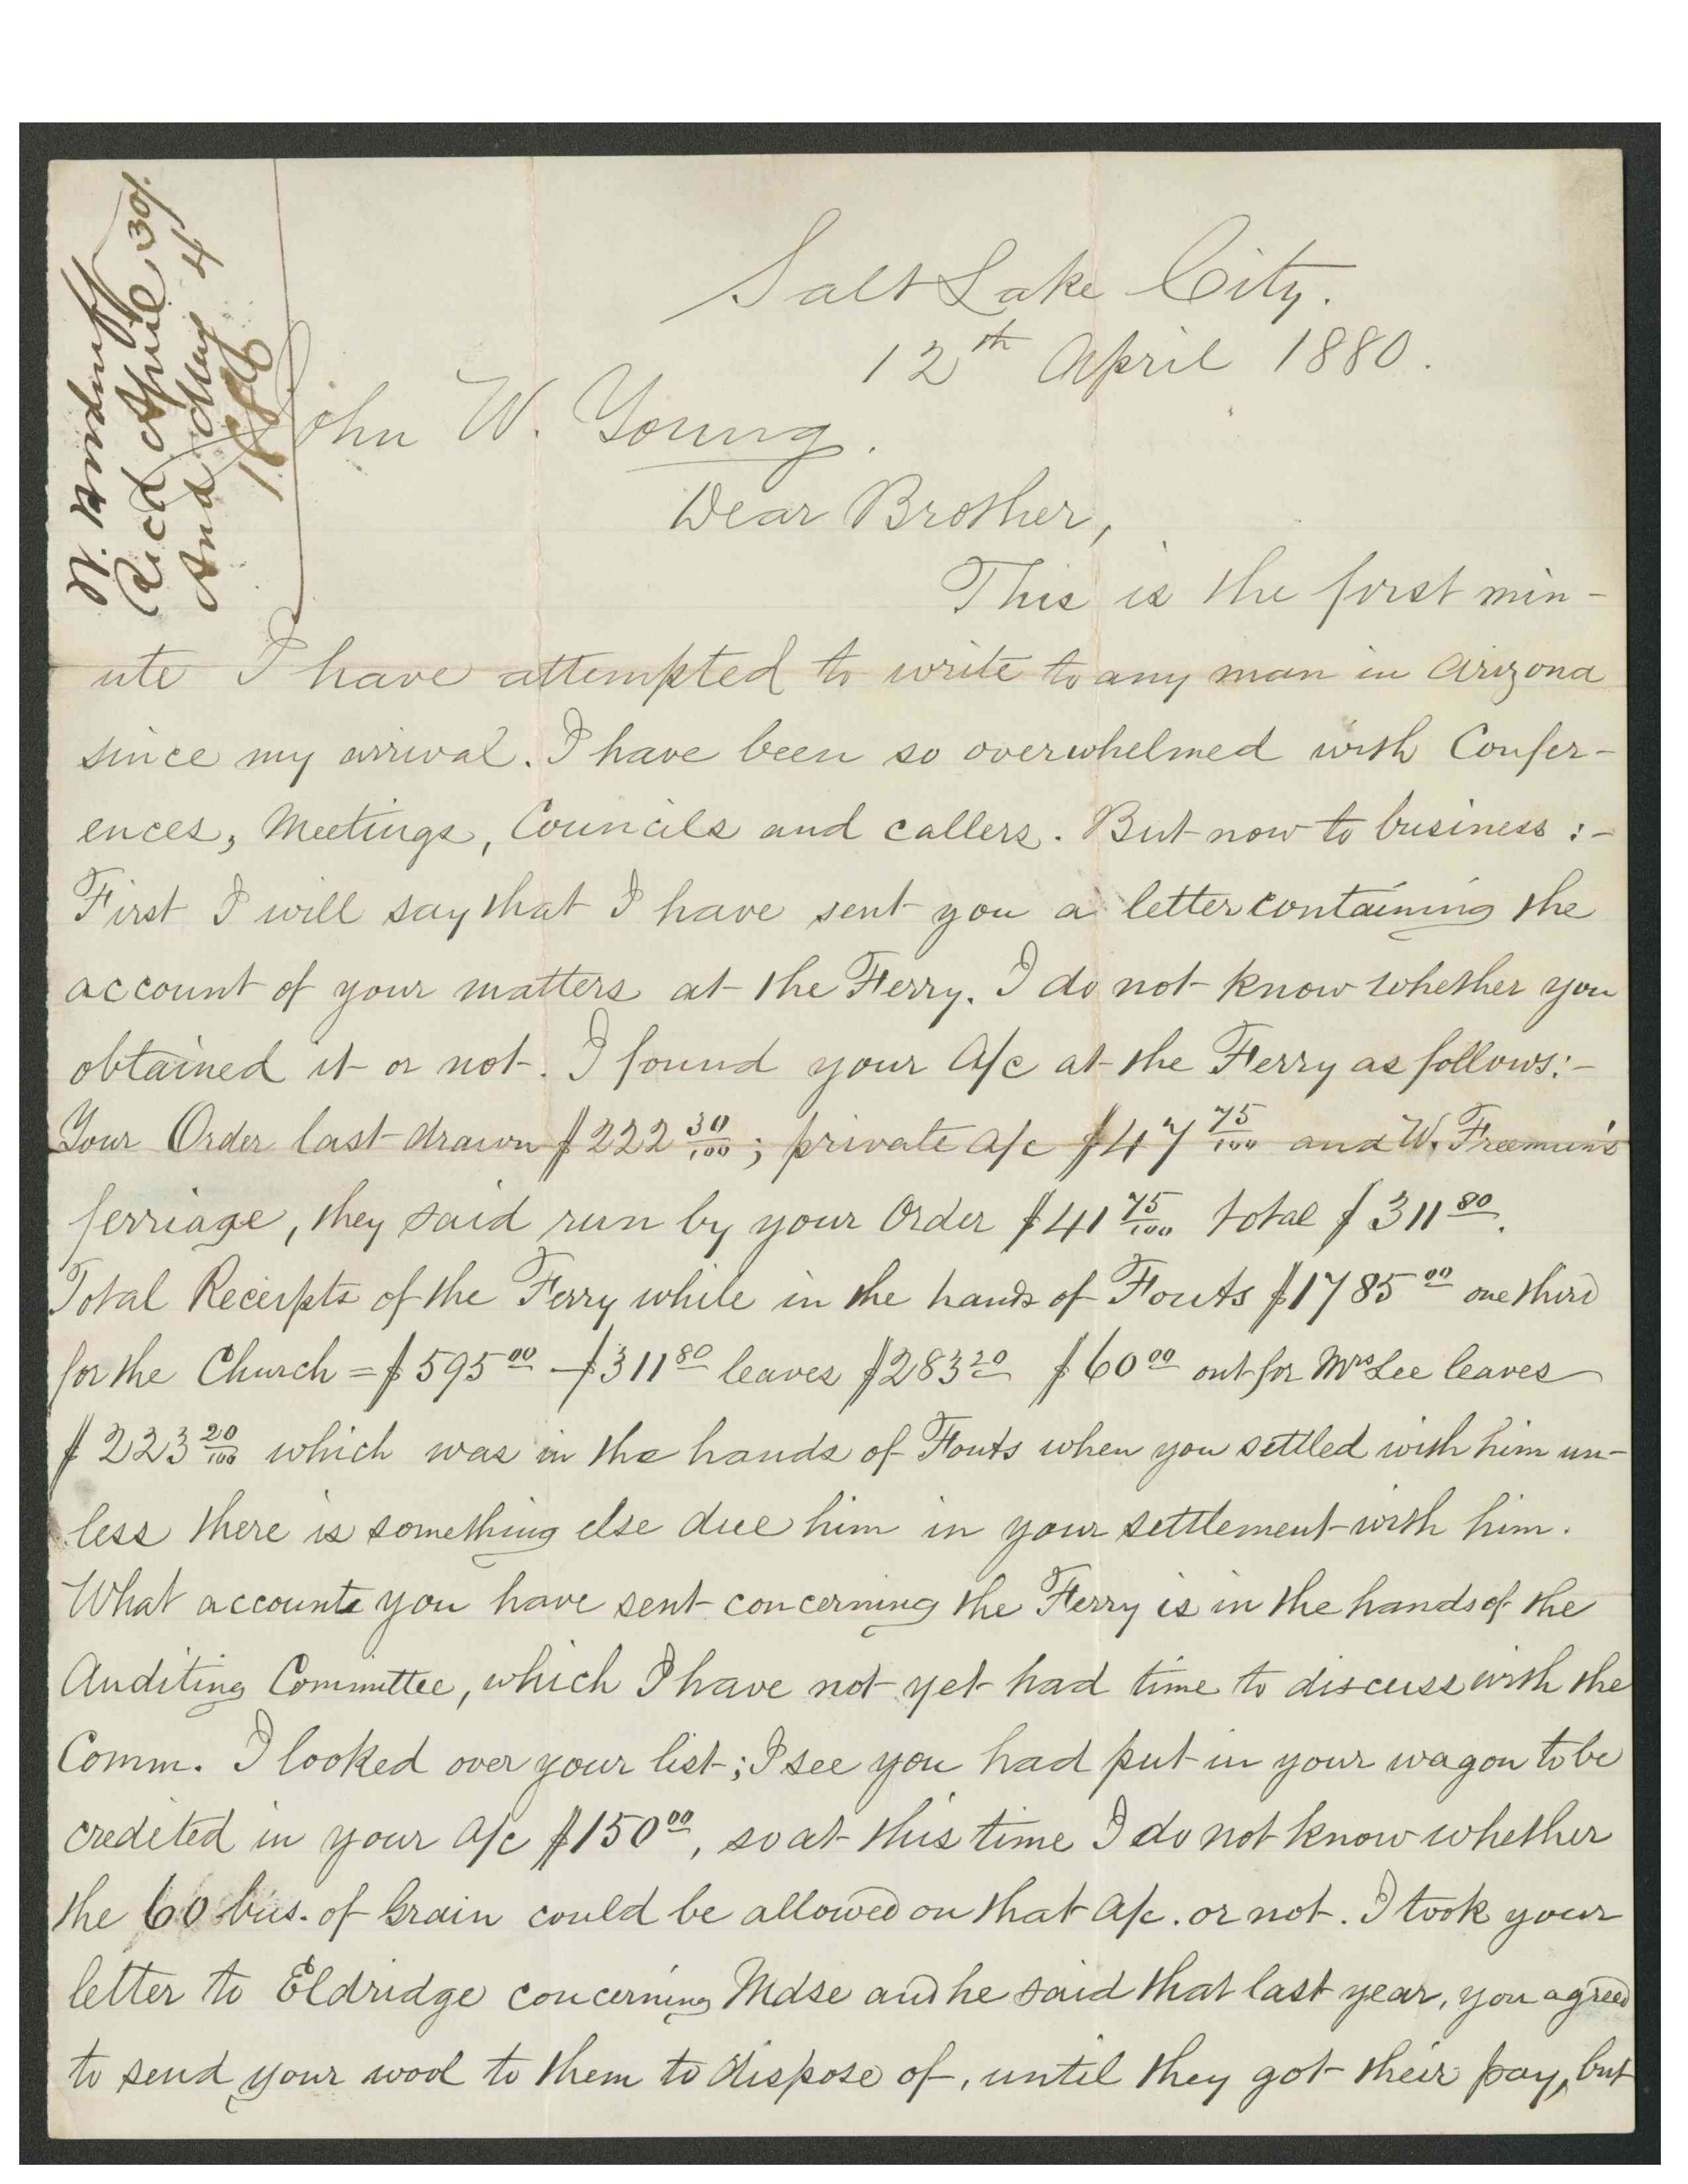 W. Woodruff
Recd April 30/
And May 4
1880
Salt Lake City.
12th April 1880.
John W. Young.
Dear Brother,
This is the first min-
ute I have attempted to write to any man in Arizona
since my arrival. I have been so overwhelmed with Confer-
ences, Meetings, Councils and callers. But now to business :-
First I will say that I have sent you a letter containing the
account of your matters at the Ferry. I do not know whether you
obtained it or not. I found your a/c at the Ferry as follows:-
Your Order last drawn $222 30/100; private a/c $47 75/100 and W. Freemun's
ferriage, they said run by your Order $41 75/100 total $311 80.
Total Receipts of the Ferry while in the hands of Fouts $1785 00 one third
for the Church = $595 00 - $311 80 leaves $283 20 $60 00 out for Mrs Lee leaves
$223 20/100 which was in the hands of Fouts when you settled with him un-
less there is something else due him in your settlement with him.
What accounts you have sent concerning the Ferry is in the hands of the
Auditing Committee, which I have not yet had time to discuss with the
Comm. I looked over your list; I see you had put in your wagon to be
credited in your a/c $150 00, so at this time I do not know whether
the 60 bus. of Grain could be allowed on that a/c. or not. I took your
letter to Eldridge concerning Mdse and he said that last year, you agreed
to send your wool to them to dispose of, until they got their pay, but